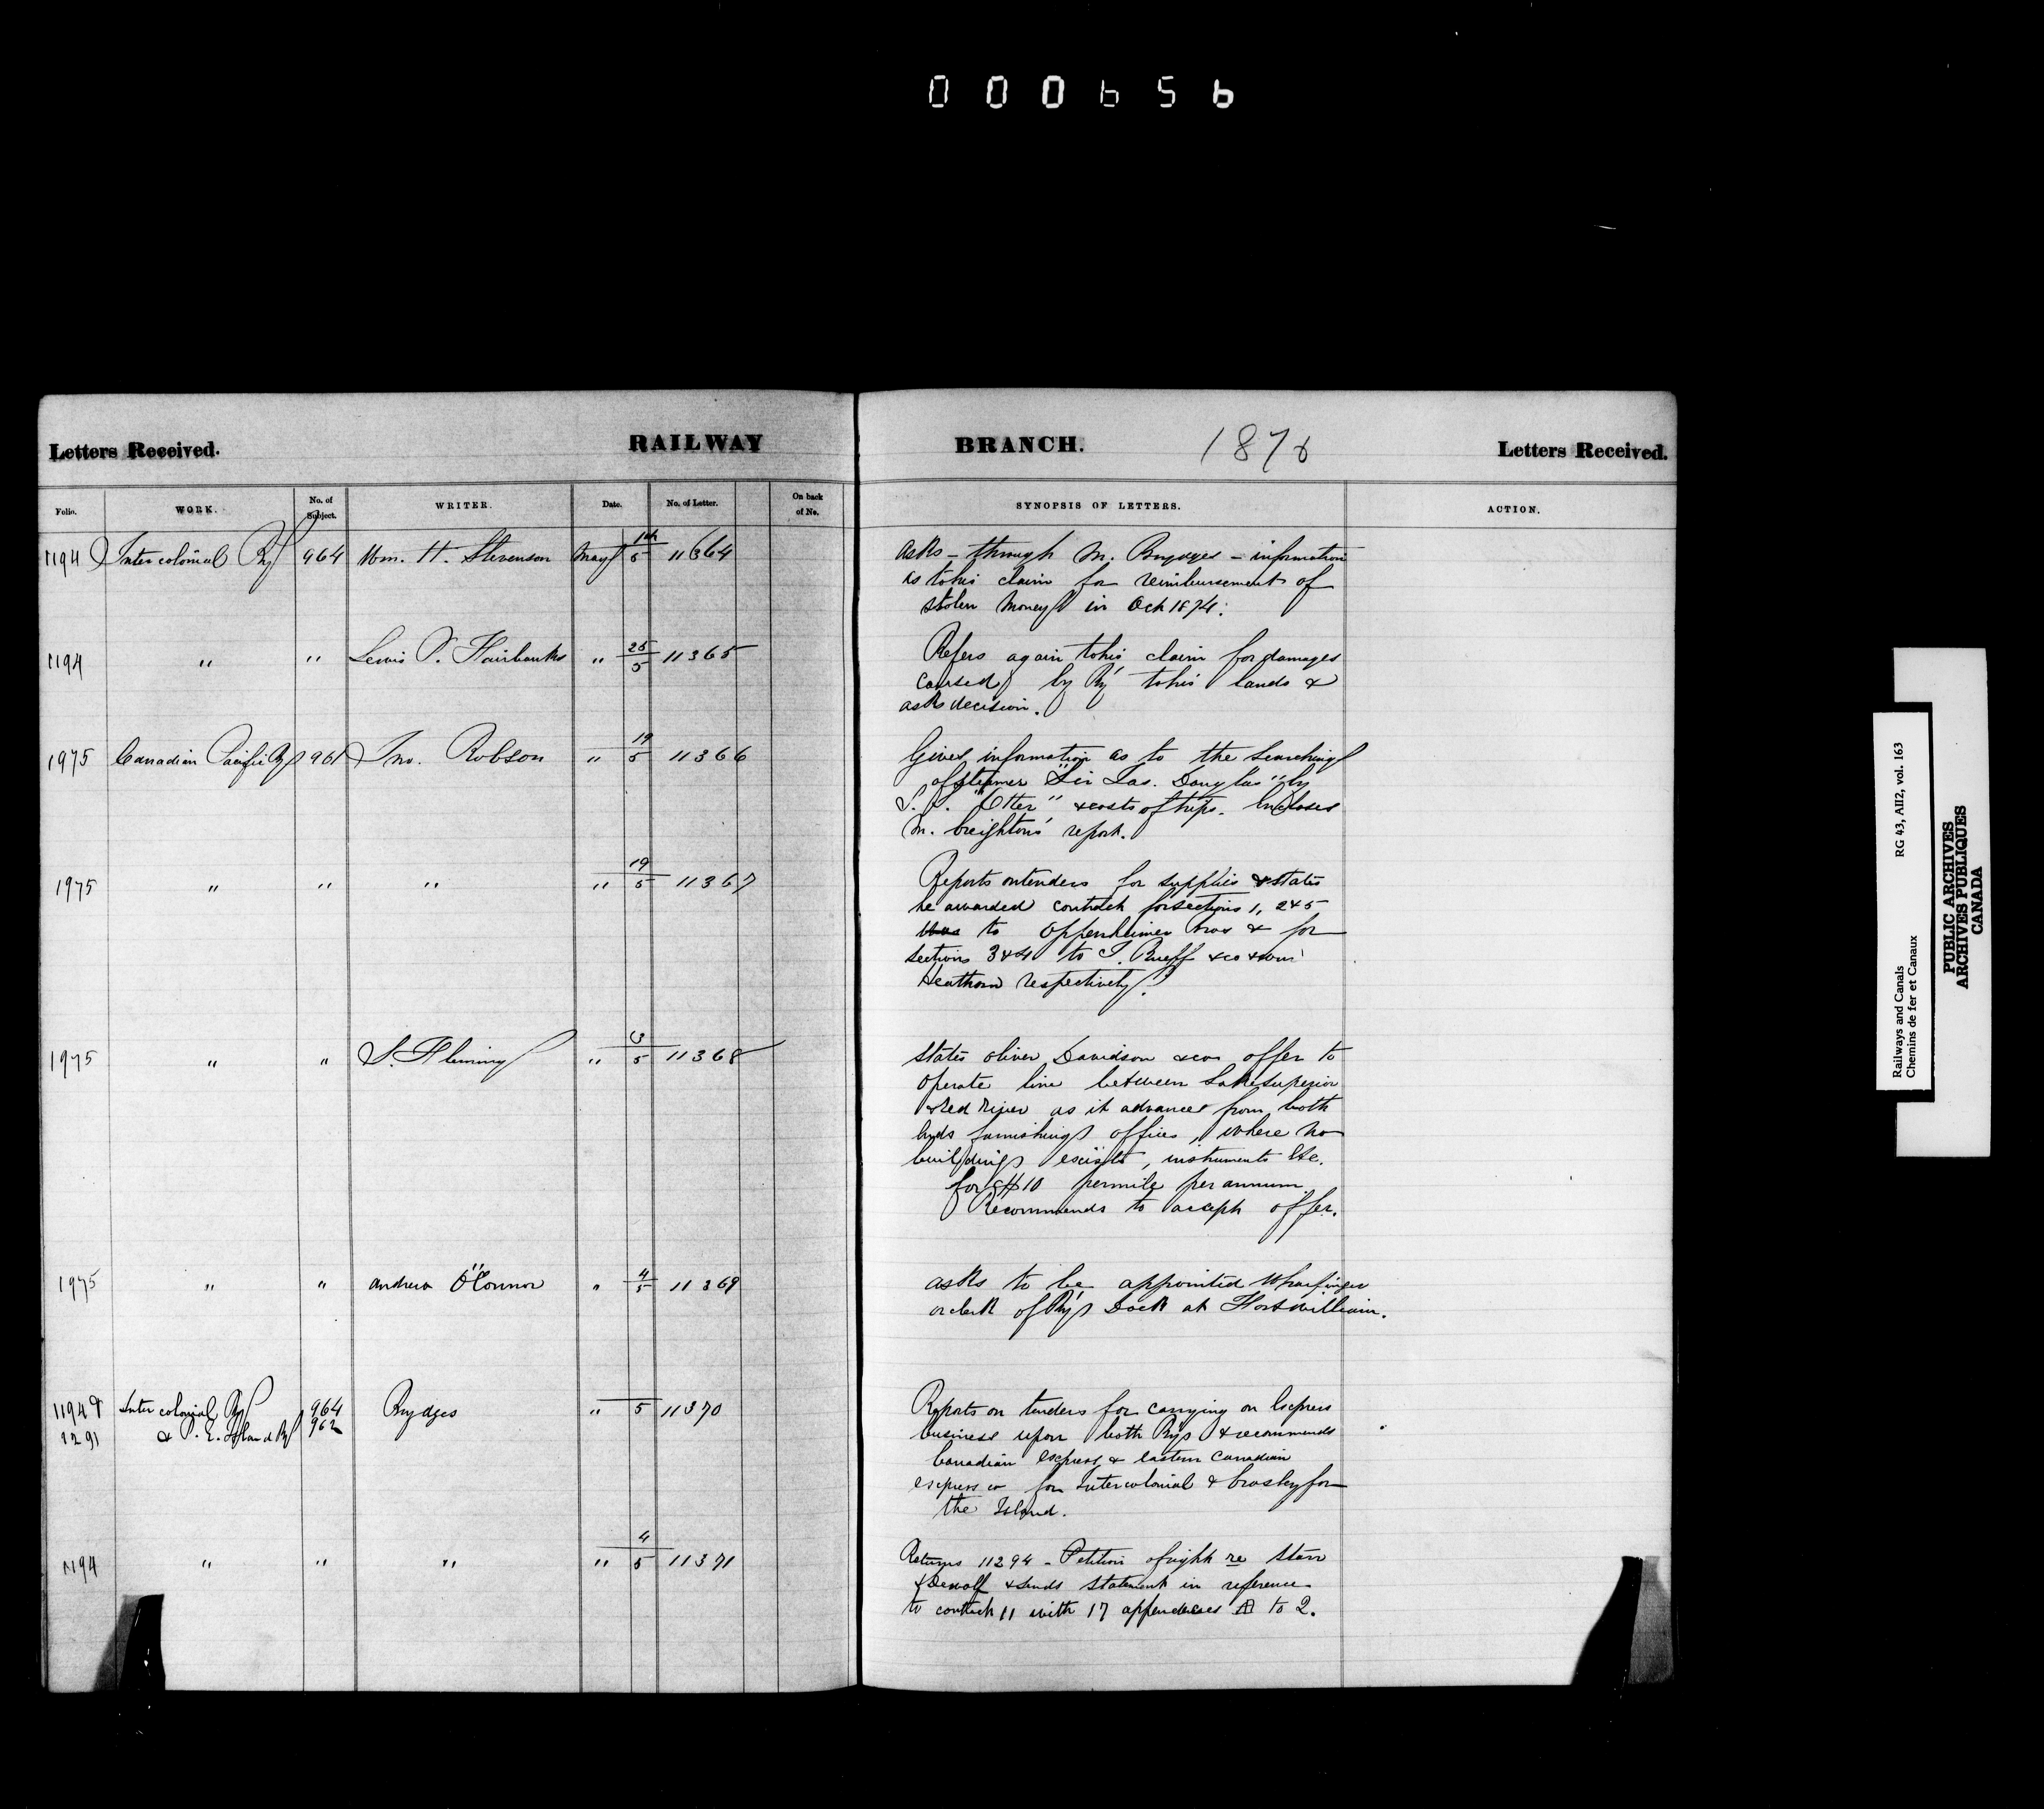 000656
Letters Received.
RAILWAY
BRANCH.
1878
Letters Received.
Folio.
WORK.
No. of Subject.
WRITER.
Date.
No. of Letter.
On back of No.
SYNOPSIS OF LETTERS.
ACTION.
1194 Intercolonial Ry 964 Wm. H. Stevenson May 5 11364
asks - through Mr. Brydges - information
as to his claim for reimbursement of
stolen money in Oct 1874.
1194 " " Lewis P. Fairbanks " 25/5 11365
Refers again to his claim for damages
caused by Ry to his lands &
asks decision.
1975 Canadian Pacific Ry 961 Jno. Robson " 19/5 11366
Gives information as to the searching
of steamer "Sir Jas. Douglas" by
S. S. "Otter" & costs of trips. Incloses
Mr. Creighton's report.
1975 " " " " 19/5 11367
Reports on tenders for supplies & states
he awarded contract for sections 1, 2 & 5
was to Oppenheimer Bros & for
sections 3 & 4 to J. Rueff & co &
Heathorn respectively.
1975 " " S. Fleming " 3/5 11368
States Oliver Davidson & cos offer to
operate line between Lake Superior
& Red River as it advances from both
ends furnishing offices, where no
buildings exists, instruments &c.
for $10 per mile per annum
Recommends to accept offer.
1975 " " Andrew O'Connor " 4/5 11369
asks to be appointed Wharfinger
or clerk of Ry's Dock at Fort William.
1194 & Intercolonial Ry 964 Brydges " 5 11370
1291 & P. E. Island Ry 962
Reports on tenders for carrying on Express
business upon both Rys & recommends
Canadian express & eastern Canadian
express co for Intercolonial & Crosby for
the Island.
1194 " " " " 4/5 11371
Returns 11294 - Petition of right re Starr
& Dewolf & sends statement in reference
to contract 11 with 17 appendices A to 2.
Railways and Canals RG 43, AII2, vol. 163
Chemins de fer et Canaux
PUBLIC ARCHIVES
ARCHIVES PUBLIQUES
CANADA